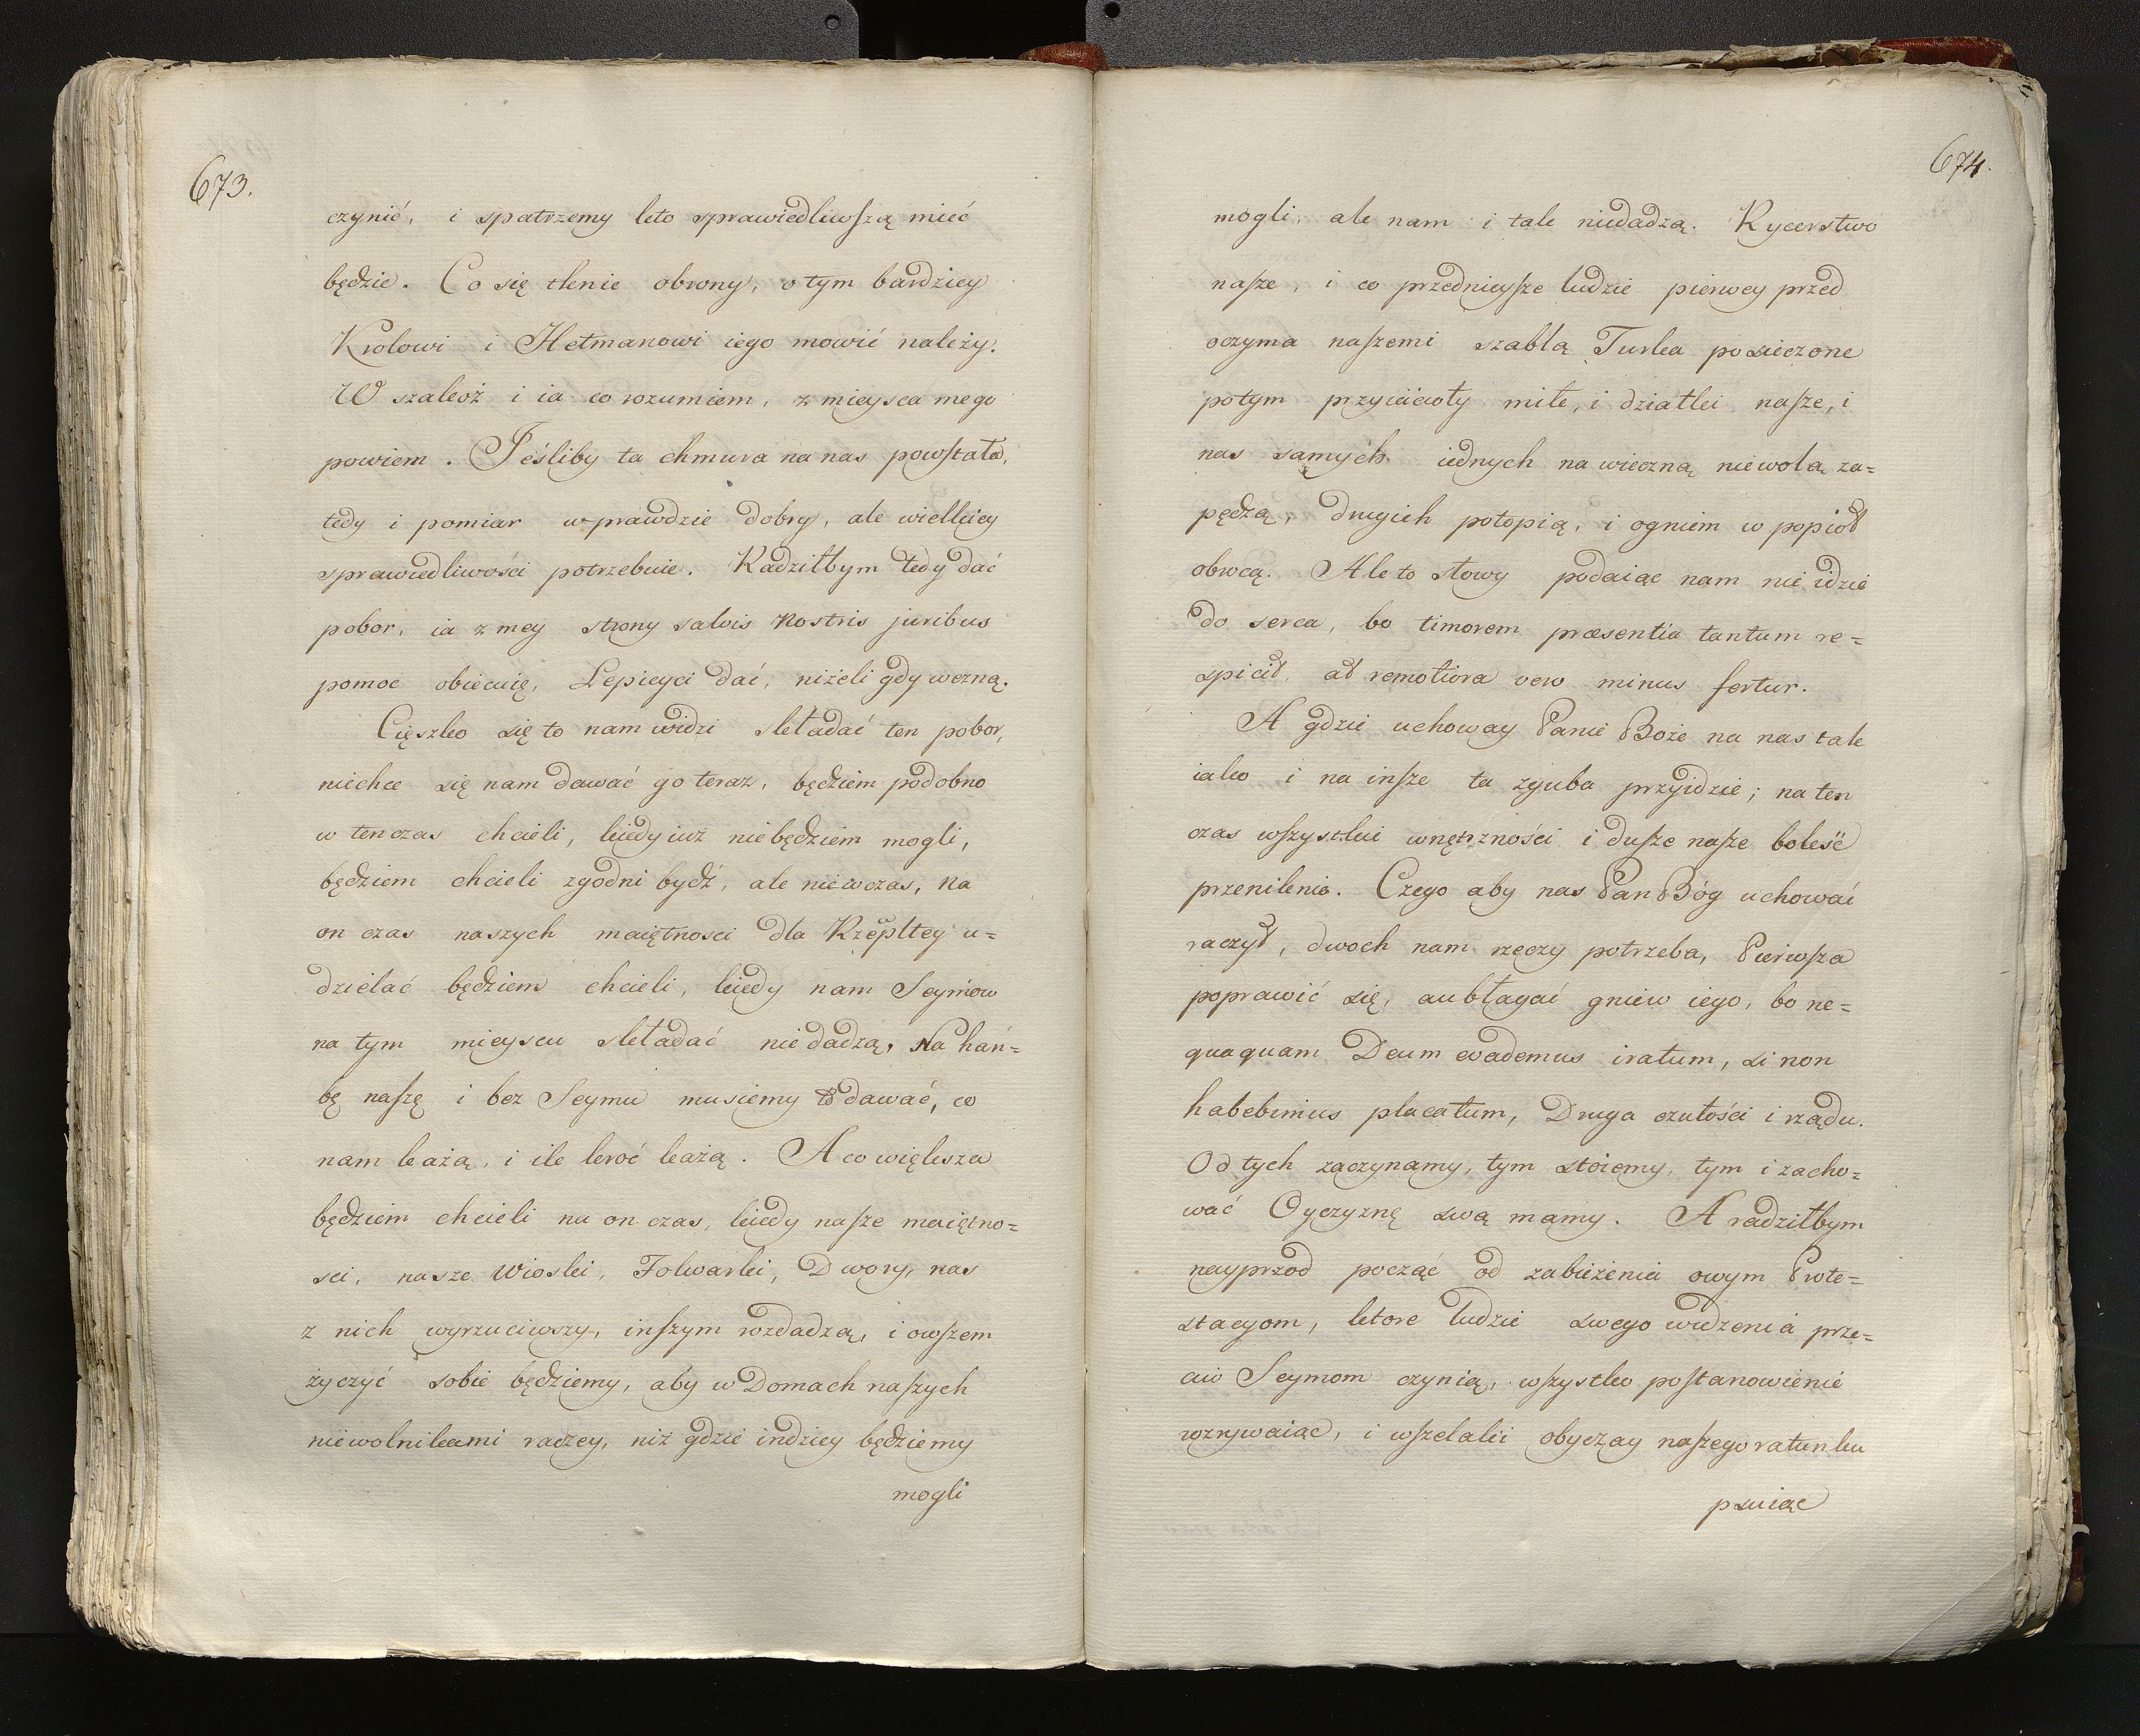 673.
czynić, i spatrzemy kto sprawiedliwszą mieć
będzie. Co się tknie obrony, o tym bardziey
Krolowi i Hetmanowi iego mowić należy.
Wszakoż i ia co rozumiem, z mieysca mego
powiem. Jeśliby ta chmura na nas powstała,
tedy i pomiar wprawdzie dobry, ale wielkiey
sprawiedliwości potrzebuie. Radziłbym tedy dać
pobor, ia z mey strony salvis nostris juribus
pomoc obiecuię, Lepieyci dać, niżeli gdy wezną.
Cięszko się to nam widzi składać ten pobor,
niechce się nam dawać go teraz, będziem podobno
w ten czas chcieli, kiedy iuż niebędziem mogli,
będziem chcieli zgodni bydź, ale niewczas, na
on czas naszych maiętnosci dla Rzepltey u=
dzielać będziem chcieli, kiedy nam Seymow
na tym mieyscu składać nie dadzą, Na hań=
bę naszę i bez Seymu musiemy to dawać, co
nam każą, i ile kroć każą. A co większa
będziem chcieli na on czas, kiedy nasze maiętno=
sci, nasze wioski, Folwarki, Dwory, nas
z nich wyrzuciwszy, inszym rozdadzą, i owszem
życzyć sobie będziemy, aby w Domach naszych
niewolnikami raczey, niż gdzie indziey będziemy
mogli
674.
mogli, ale nam i tak niedadzą. Rycerstwo
nasze, i co przednieysze ludzie pierwey przed
oczyma naszemi szablą Turka posieczone
potym przyiacioły miłe, i dziatki nasze, i
nas samych iednych na wieczną niewolą za=
pędzą, drugich potopią, i ogniem w popioł
obrocą. Ale to słowy podaiąc nam nie idzie
do serca, bo timorem præsentia tantum re=
spicit, ad remotiora vero minus fertur.
A gdzie uchoway Panie Boże na nas tak
iako i na insze ta zguba przyidzie; na ten
czas wszystkie wnętrzności i dusze nasze boleść
przeniknie. Czego aby nas Pan Bóg uchować
raczył, dwoch nam rzeczy potrzeba, Pierwsza
poprawić się, aubłagać gniew iego, bo ne=
quaquam Deum evademus iratum, si non
habebimus placatum, Druga czułości i rządu.
Od tych zaczynamy, tym stoiemy, tym i zacho=
wać Oyczyznę swą mamy. A radziłbym
nayprzod począć od zabieżenia owym Prote=
stacyom, ktore ludzie swego widzenia prze=
ciw Seymom czynią, wszystko postanowienie
wzrywaiąc, i wszelaki obyczay naszego ratunku
psuiąc